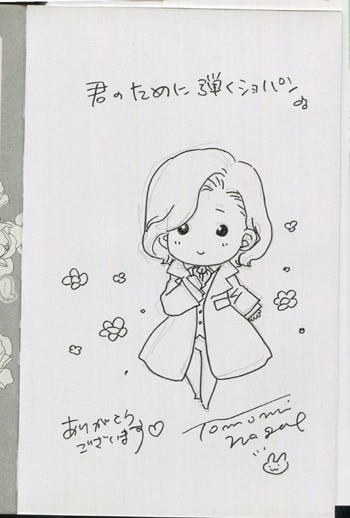 君のために弾くショパン
ありがとう
ございます♡
Tomomi
Nagae